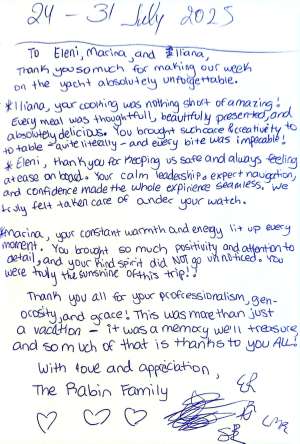 24 - 31 July 2025
To Eleni, Marina, and Iliana,
Thank you so much for making our week
on the yacht absolutely unforgettable.
*Iliana, your cooking was nothing short of amazing!
Every meal was thoughtfull, beautifully presented, and
absolutely delicious. You brought such care & creativity to
to table - quite literally - and every bite was impecable!
*Eleni, thank you for keeping us safe and always feeling
at ease on board. Your calm leadership, expert navigation,
and confidence made the whole expirience seamless. We
truly felt taken care of under your watch.
*Marina, your constant warmth and energy lit up every
moment. You brought so much positivity and attention to
detail, and your kind spirit did NOT go unnoticed. You
were truly the sunshine of this trip!!
Thank you all for your proffessionalism, gen-
orosity, and grace! This was more than just
a vacation - it was a memory we'll treasure
and so much of that is thanks to you ALL!
With love and appreciation,
The Rabin Family
ER
LMR
SR